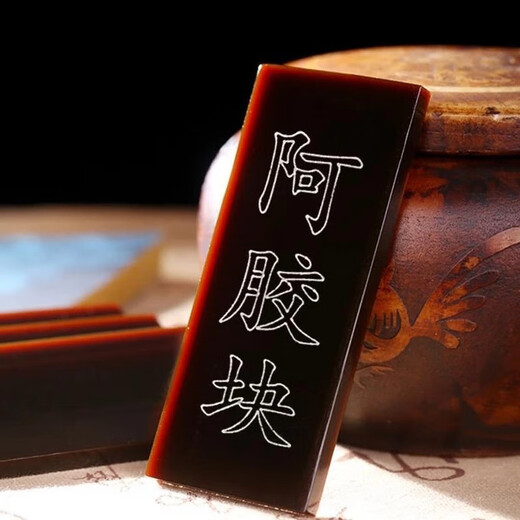 阿胶块